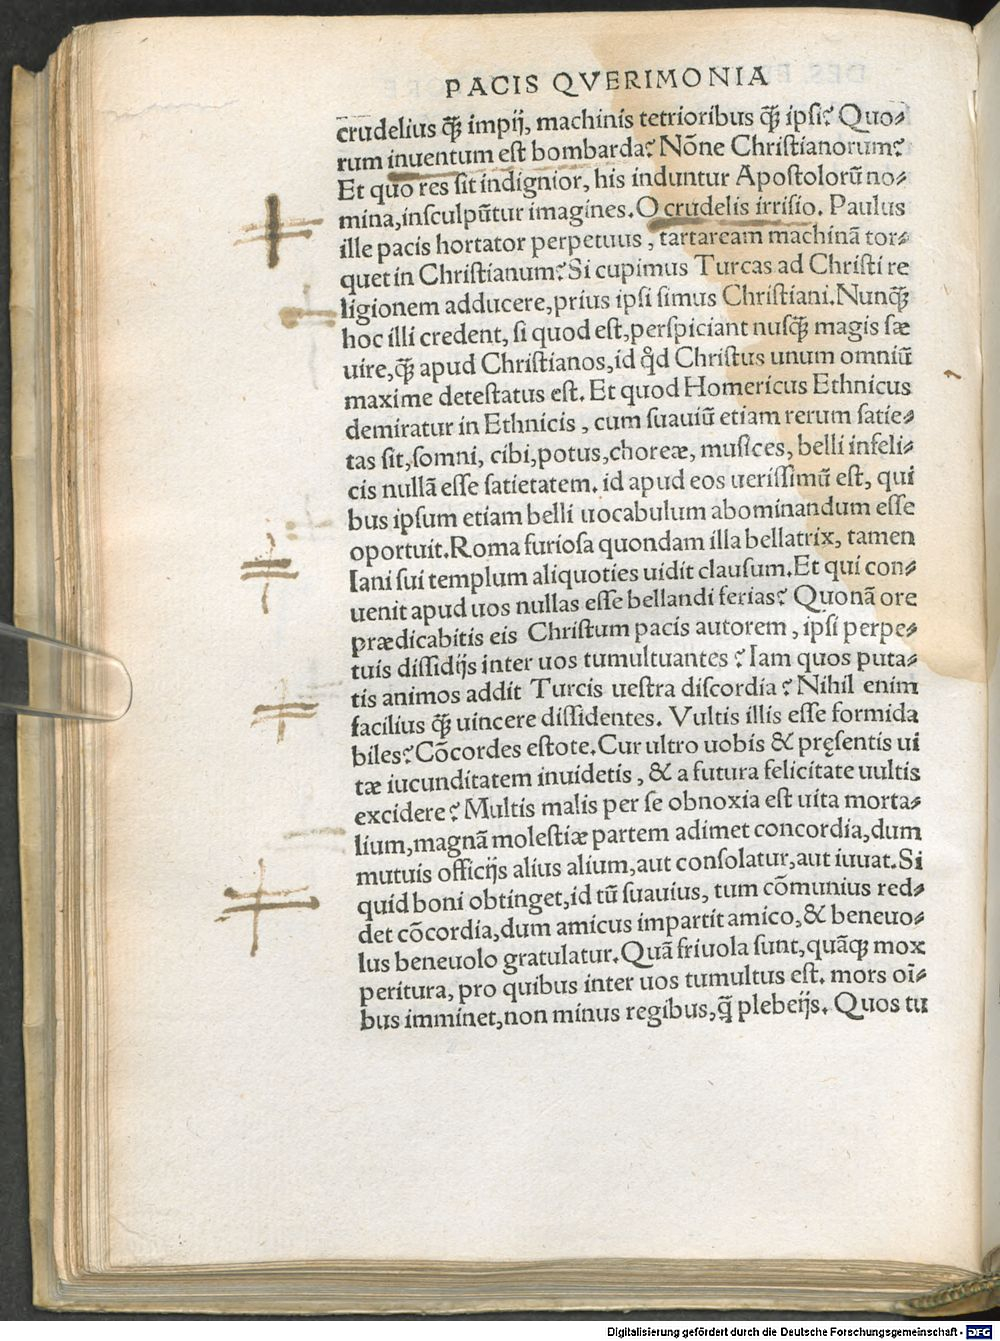 PACIS QVERIMONIA
crudelius q̃ꝫ impij, machinis tetrioribus q̃ꝫ ipsi? Quo⸗
rum inuentum est bombarda? Nõne Christianorum?
Et quo res sit indignior, his induntur Apostolorũ no⸗
mina, insculpũtur imagines. O crudelis irrisio. Paulus
ille pacis hortator perpetuus, tartaream machinã tor⸗
quet in Christianum? Si cupimus Turcas ad Christi re
ligionem adducere, prius ipsi simus Christiani. Nunq̃ꝫ
hoc illi credent, si quod est, perspiciant nusq̃ꝫ magis sæ
uire, q̃ꝫ apud Christianos, id qđ Christus unum omniũ
maxime detestatus est. Et quod Homericus Ethnicus
demiratur in Ethnicis, cum suauiũ etiam rerum satie⸗
tas sit, somni, cibi, potus, choreæ, musices, belli infeli⸗
cis nullã esse satietatem. id apud eos uerissimũ est, qui
bus ipsum etiam belli uocabulum abominandum esse
oportuit. Roma furiosa quondam illa bellatrix, tamen
Iani sui templum aliquoties uidit clausum. Et qui con⸗
uenit apud uos nullas esse bellandi ferias? Quonã ore
prædicabitis eis Christum pacis autorem, ipsi perpe⸗
tuis dissidijs inter uos tumultuantes? Iam quos puta⸗
tis animos addit Turcis uestra discordia? Nihil enim
facilius q̃ꝫ uincere dissidentes. Vultis illis esse formida
biles? Cõcordes estote. Cur ultro uobis & pręsentis ui
tæ iucunditatem inuidetis, & a futura felicitate uultis
excidere? Multis malis per se obnoxia est uita morta⸗
lium, magnã molestiæ partem adimet concordia, dum
mutuis officijs alius alium, aut consolatur, aut iuuat. Si
quid boni obtinget, id tũ suauius, tum cõmunius red⸗
det cõcordia, dum amicus impartit amico, & beneuo⸗
lus beneuolo gratulatur. Quã friuola sunt, quãqꝫ mox
peritura, pro quibus inter uos tumultus est. mors oĩ⸗
bus imminet, non minus regibus, q̃ꝫ plebeijs. Quos tu
Digitalisierung gefördert durch die Deutsche Forschungsgemeinschaft - DFG